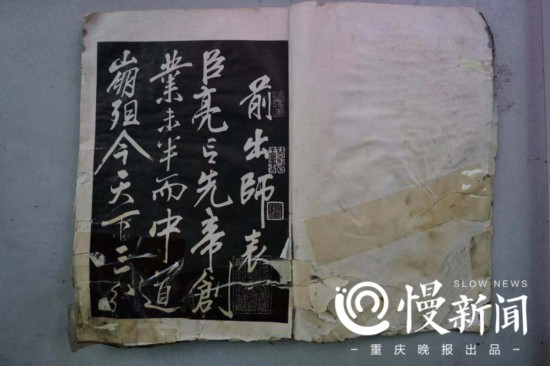 前出師表
臣亮言先帝創
業未半而中道
崩殂今天下三分
SLOW NEWS
慢新闻
－重庆晚报出品－